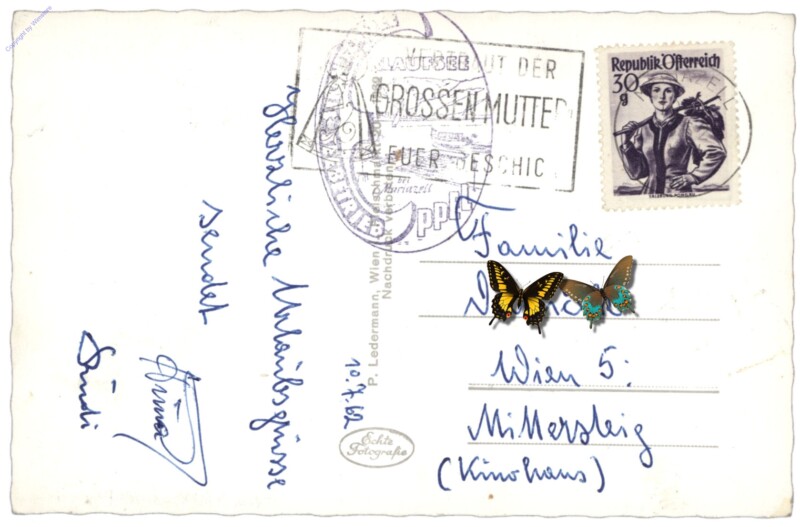 Copyright by Wiendorra
VERTRAUT DER
GROSSEN MUTTER
EUER GESCHIC
LAUFSEE
Mariazell
Republik Österreich
30
g
Herzliche Urlaubsgrüsse
sendet
Sindi
10.7.62
P. Ledermann, Wien
Nachdruck verboten
Echte
Fotografie
Familie
Wien 5.
Mittersteig
(Kinohaus)